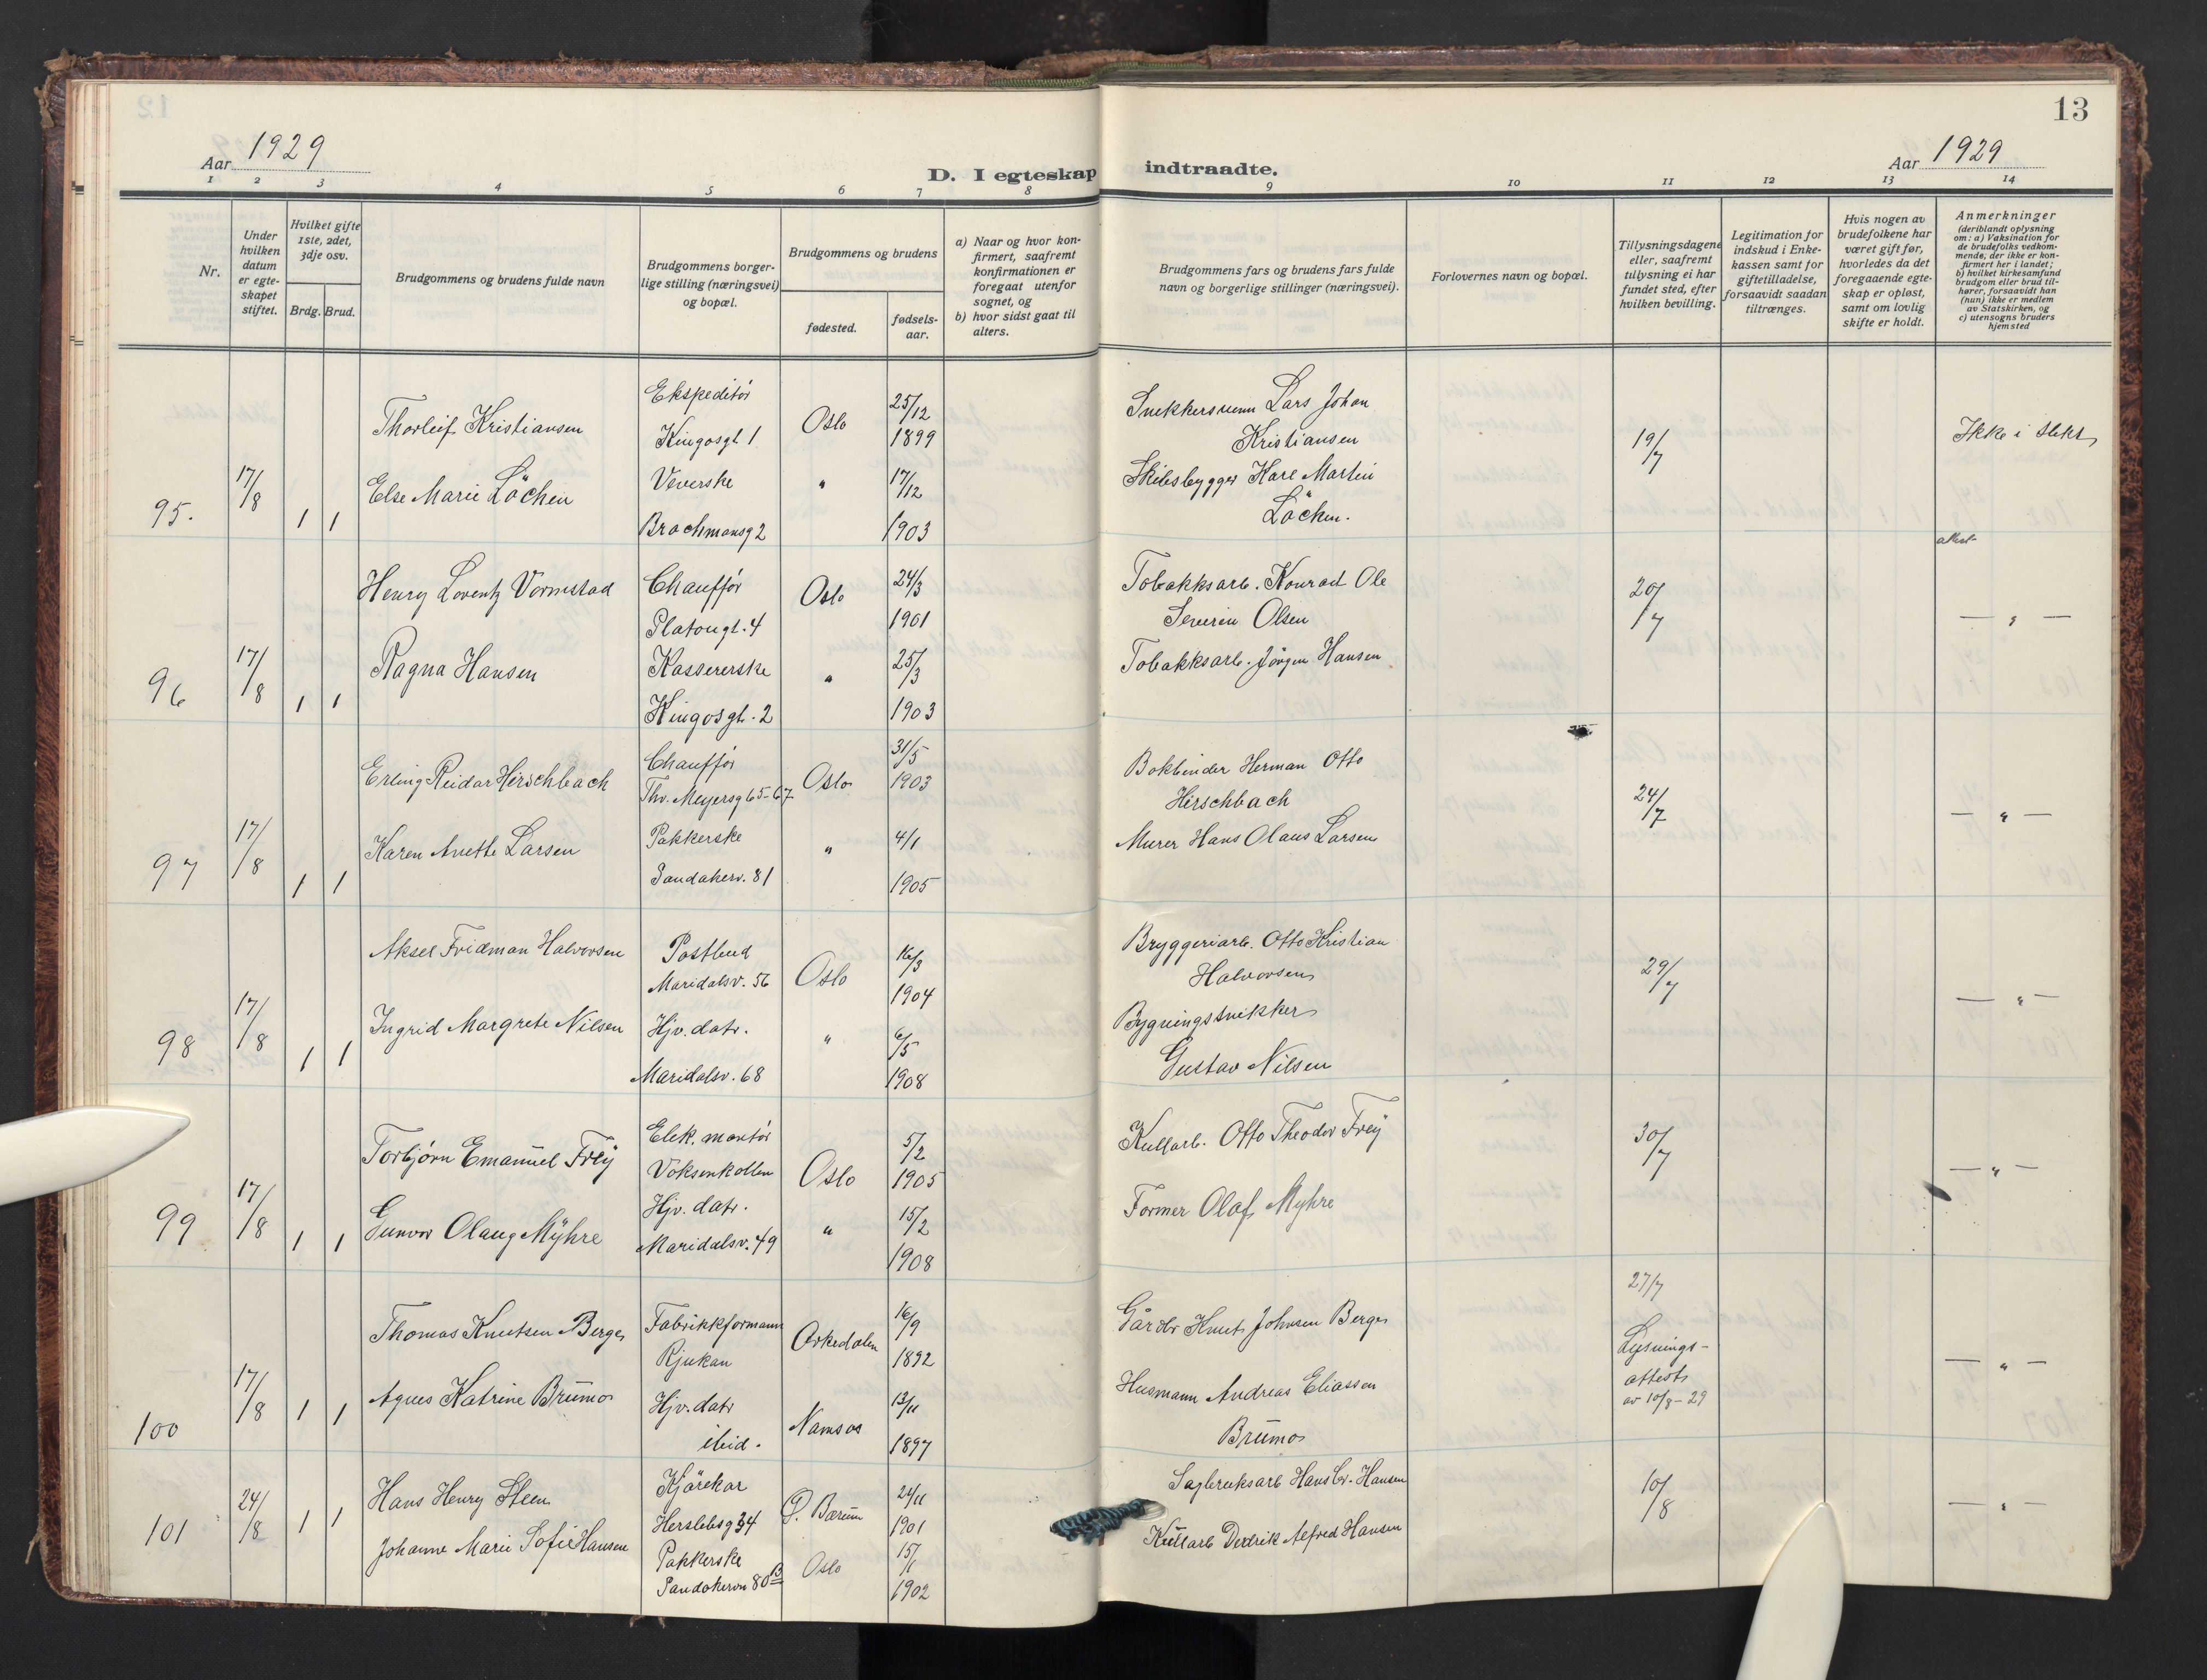 12
13
Aar 1929
Aar 1929
D. I egteskap indtraadte.
1 2 3 4 5 6 7 8 9 10 11 12 13 14
Nr.
Under hvilken datum er egteskapet stiftet.
Hvilket gifte 1ste, 2det, 3dje osv.
Brdg. Brud.
Brudgommens og brudens fulde navn
Brudgommens borgerlige stilling (næringsvei) og bopæl.
Brudgommens og brudens
fødested.
fødselsaar.
a) Naar og hvor konfirmert, saafremt konfirmationen er foregaat utenfor sognet, og
b) hvor sidst gaat til alters.
Brudgommens fars og brudens fars fulde navn og borgerlige stillinger (næringsvei).
Forlovernes navn og bopæl.
Tillysningsdagene eller, saafremt tillysning ei har fundet sted, efter hvilken bevilling.
Legitimation for indskud i Enkekassen samt for giftetilladelse, forsaavidt saadan tiltrænges.
Hvis nogen av brudefolkene har været gift før, hvorledes da det foregaaende egteskap er opløst, samt om lovlig skifte er holdt.
Anmerkninger
(deriblandt oplysning om: a) Vaksination for de brudefolks vedkommende, der ikke er konfirmert her i landet; b) hvilket kirkesamfund brudgom eller brud tilhører, forsaavidt han (hun) ikke er medlem av Statskirken, og c) utensogns bruders hjemsted
95. 17/8 1 1
Thorleif Kristiansen
Ekspeditør
Kingosgt 1
Oslo
25/12
1899
Snekkersvenn Lars Johan
Kristiansen
19/7
Ikke i slekt
Else Marie Löchen
Veverske
Brochmansg 2
"
17/12
1903
Skibsbygger Karl Martin
Löchen.
96 17/8 1 1
Henry Lorentz Vormstad
Chauffør
Platougt. 4
Oslo
24/3
1901
Tobakksarb. Konrad Ole
Severin Olsen
20/7
— " —
Ragna Hansen
Kassererske
Kingosgt. 2
"
25/3
1903
Tobakksarb. Jörgen Hansen
97 17/8 1 1
Erling Reidar Hirschbach
Chauffør
Thv. Meyersg 65-67
Oslo
31/5
1903
Bokbinder Herman Otto
Hirschbach
24/7
— " —
Karen Anette Larsen
Pakkerske
Sandakerv. 81
"
4/1
1905
Murer Hans Olaus Larsen
98 17/8 1 1
Aksel Fridman Halvorsen
Postbud
Maridalsv. 56
Oslo
16/3
1904
Bryggeriarb. Otto Kristian
Halvorsen
29/7
— " —
Ingrid Margrete Nilsen
Hjv. datr.
Maridalsv. 68
"
6/5
1908
Bygningssnikker
Gustav Nilsen
99 17/8 1 1
Torbjørn Emanuel Frey
Elek. montør
Voksenkollen
Oslo
5/2
1905
Kullarb. Otto Theodor Frey
30/7
— " —
Gunvor Olaug Myhre
Hjv. datr.
Maridalsv. 49
"
15/2
1908
Former Olaf Myhre
100 17/8 1 1
Thomas Knutsen Berge
Fabrikkformann
Rjukan
Orkedalen
16/9
1892
Gårdbr Knut Johnsen Berge
27/7
Lysnings-
attest
av 10/8-29
— " —
Agnes Katrine Brumo
Hjv. datr
ibid.
Namsos
13/11
1897
Husmann Andreas Eliassen
Brumo
101 24/8 1 1
Hans Henry Steen
Kjörekar
Herslebsg 34
Ø. Bærum
24/11
1901
Sagbruksarb Hans Hansen
10/8
— " —
Johanne Marie Sofie Hansen
Pakkerske
Sandakerv 80 B
Oslo
15/1
1902
Kullarb Dedrik Alfred Hansen